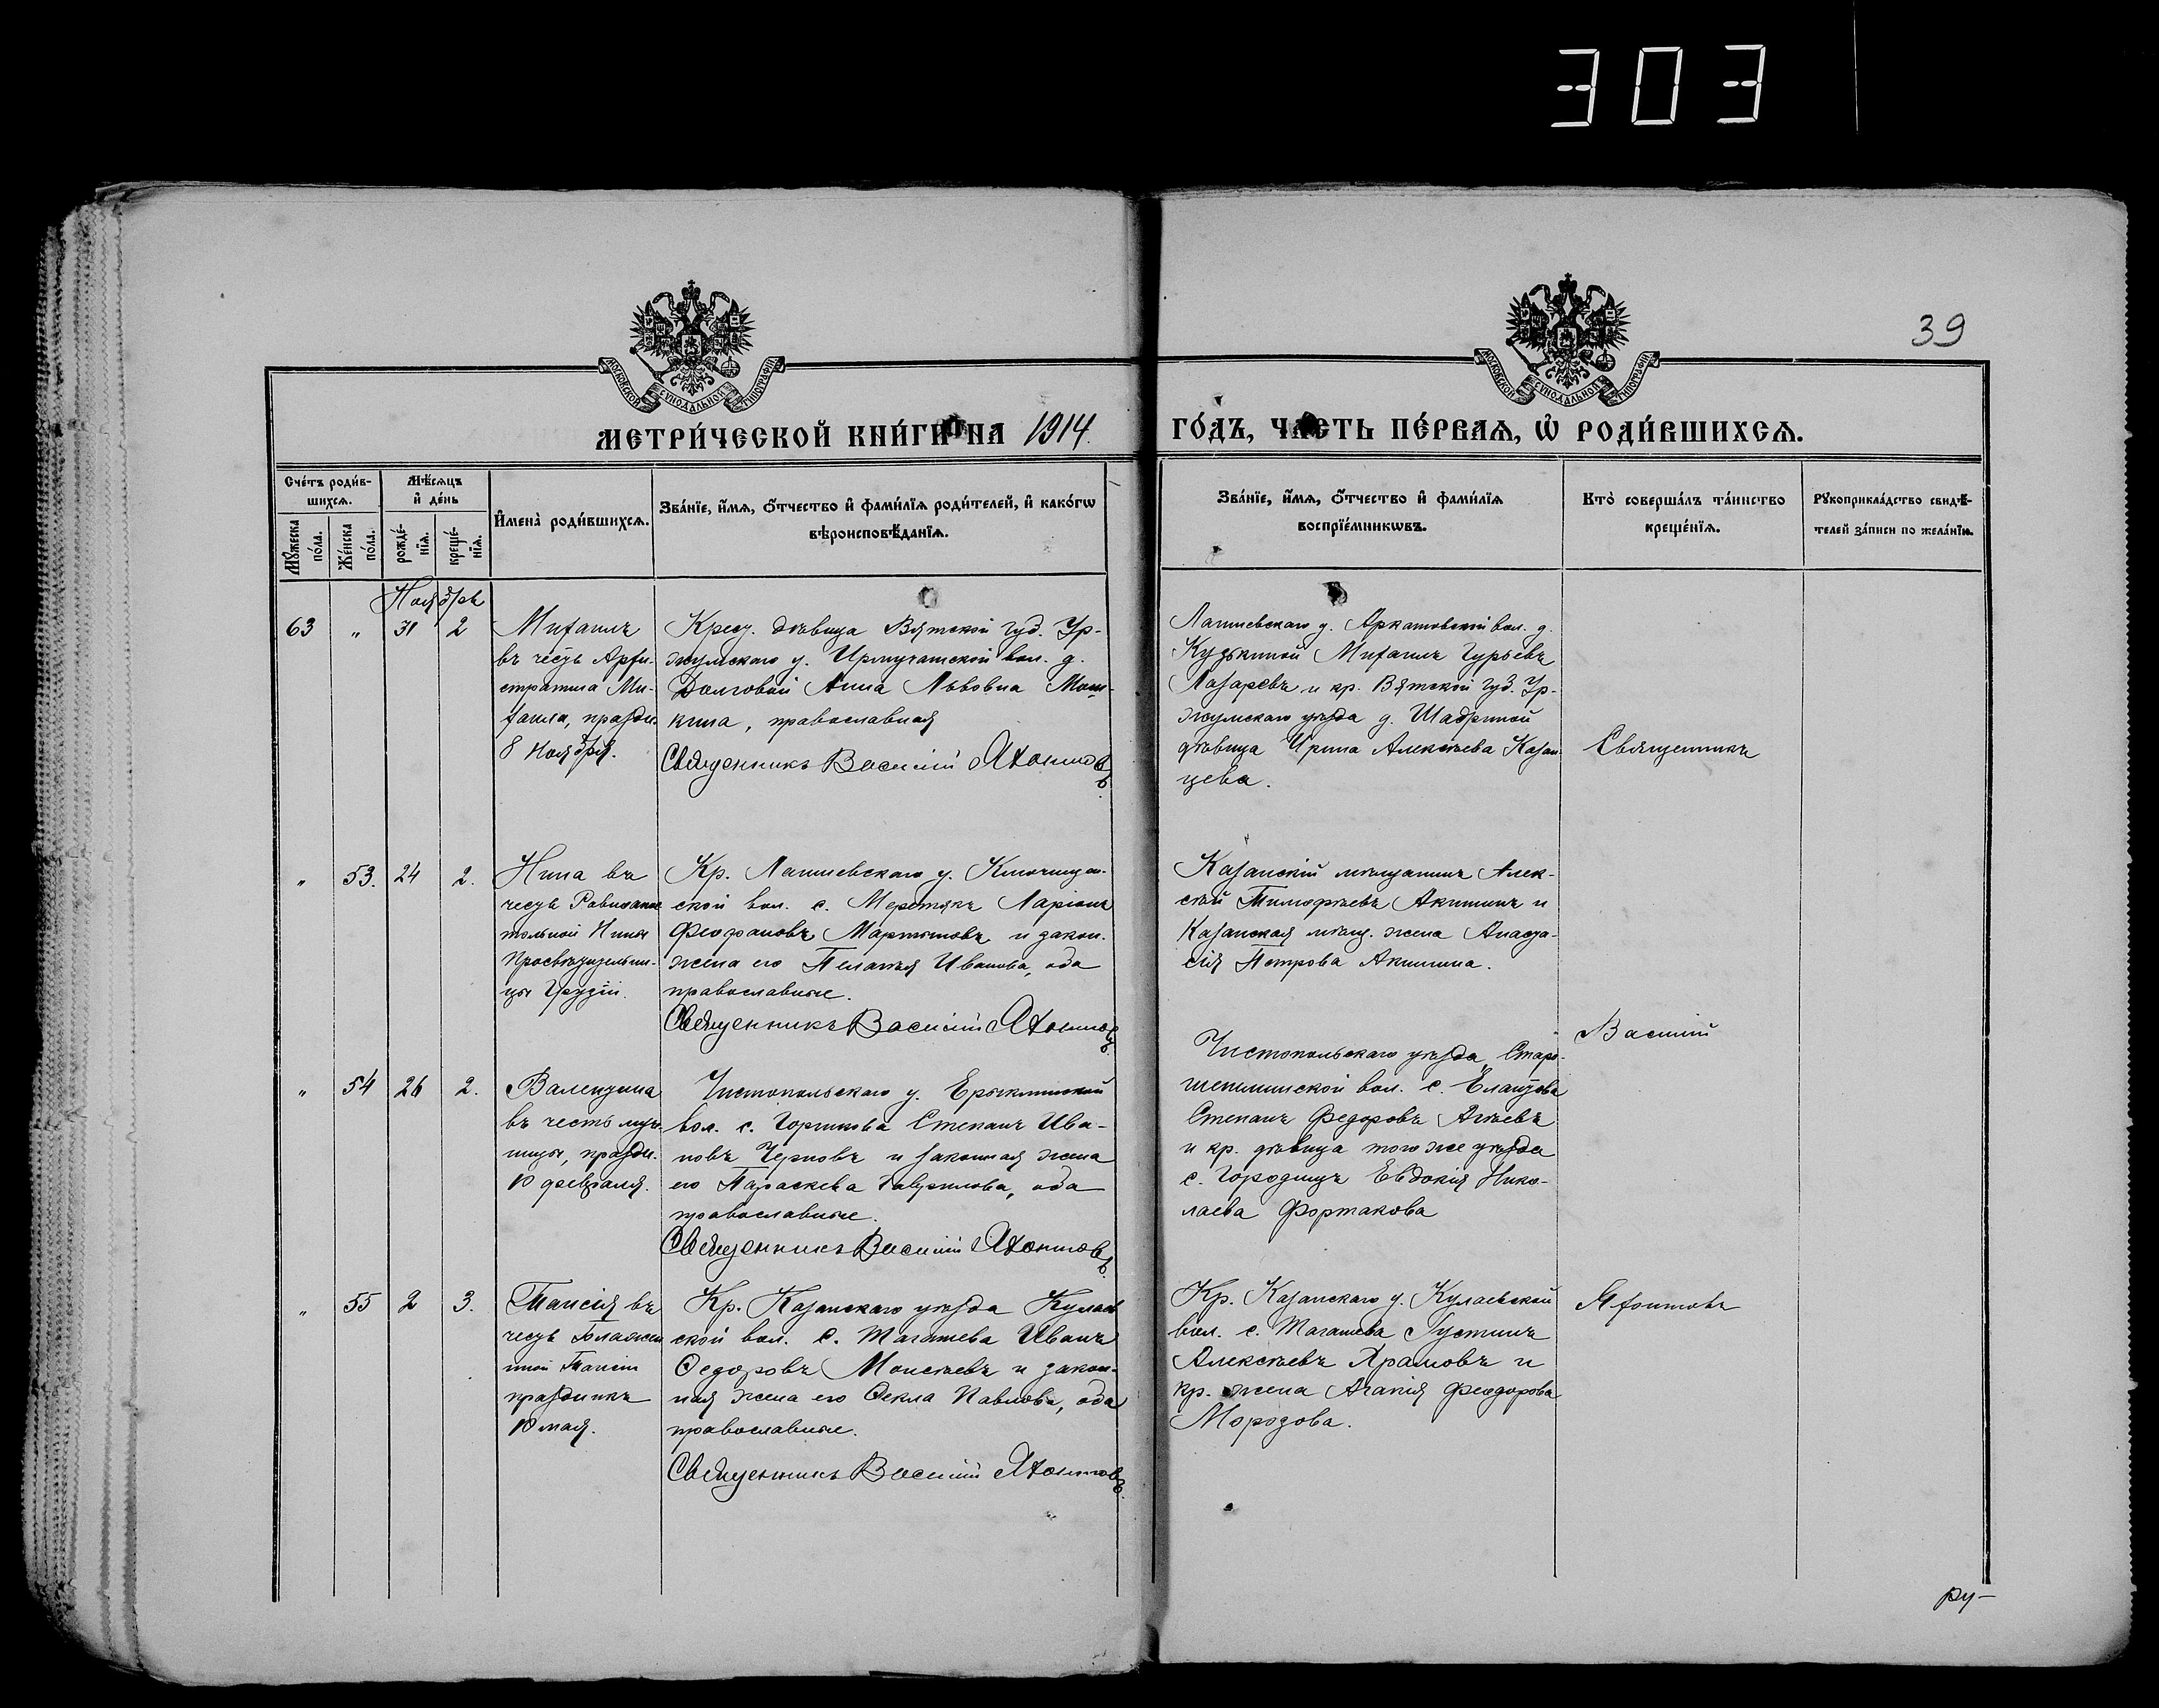 303
39
МОСКОВСКОЙ СѴНОДАЛЬНОЙ ТИПОГРАФІИ
МОСКОВСКОЙ СѴНОДАЛЬНОЙ ТИПОГРАФІИ
МЕТРИ́ЧЕСКОЙ КНИ́ГИ НА 1914.
ГО́ДЪ, ЧАСТЬ ПЕ́РВАѦ, Ѡ҆ РОДИ́ВШИХСѦ.
Сче́тъ роди́в-
шихсѧ.
Мѣ́сѧцъ
и҆ де́нь
Мꙋ́жеска
по́ла.
Же́нска
по́ла.
рожде́-
нїѧ.
креще́-
нїѧ.
И҆мена̀ роди́вшихсѧ.
Зва́нїе, и҆́мѧ, ѻ҆́тчество и҆ фами́лїѧ роди́телей, и҆ како́гѡ
вѣроисповѣ́данїѧ.
Зва́нїе, и҆́мѧ, ѻ҆́тчество и҆ фами́лїѧ
воспрїе́мникѡвъ.
Кто̀ соверша́лъ та́инство
креще́нїѧ.
Рꙋкоприкла́дство свидѣ́-
телей за́писи по жела́нїю.
Ноябрь
63 " 31 2
Михаилъ
въ честь Архи-
стратига Ми-
хаила, праздн.
8 ноября.
Крест. дѣвица Вятской губ. Ур-
жумскаго у. Ирмучашской вол. д.
Долговой Анна Львовна Мош-
кина, православная
Священникъ Василій Яхонтовъ
Лаишевскаго у. Аркатовской вол. д.
Кузькиной Михаилъ Гурьевъ
Лазаревъ и кр. Вятской губ. Ур-
жумскаго уѣзда д. Шадриной
дѣвица Ирина Алексѣева Казан-
цева.
Священникъ
" 53. 24 2.
Нина въ
честь Равноапос
тольной Нины
Просвѣтительни-
цы Грузіи.
Кр. Лаишевскаго у. Ключищен-
ской вол. с. Меретякъ Ларіонъ
Феофановъ Мартыновъ и закон.
жена его Пелагея Иванова, оба
православные.
Священникъ Василій Яхонтовъ
Казанскій мѣщанинъ Алек-
сѣй Тимофѣевъ Акишинъ и
Казанская мѣщ. жена Анаста-
сія Петрова Акишина.
Василій
" 54 26 2.
Валентина
въ честь муче-
ницы, праздн.
10 февраля.
Чистопольскаго у. Ерыклинской
вол. с. Горшкова Степанъ Ива-
новъ Черновъ и законная жена
его Параскева Гаврилова, оба
православные.
Священникъ Василій Яхонтовъ
Чистопольскаго уѣзда, Старо-
шешминской вол. с. Елантова
Степанъ Федоровъ Агѣевъ
и кр. дѣвица того же уѣзда
с. Городищъ Евдокія Нико-
лаева Фортакова
" 55 2 3.
Таисія въ
честь Блажен
ной Таисіи
праздникъ
10 мая.
Кр. Казанскаго уѣзда Кулаев
ской вол. с. Тагашева Иванъ
Ѳедоровъ Моисѣевъ и закон-
ная жена его Ѳекла Павлова, оба
православные.
Священникъ Василій Яхонтовъ.
Кр. Казанскаго у. Кулаевской
вол. с. Тагашева Густинъ
Алексѣевъ Храмовъ и
кр. жена Агапія Феодорова
Морозова.
Яхонтовъ
ру-